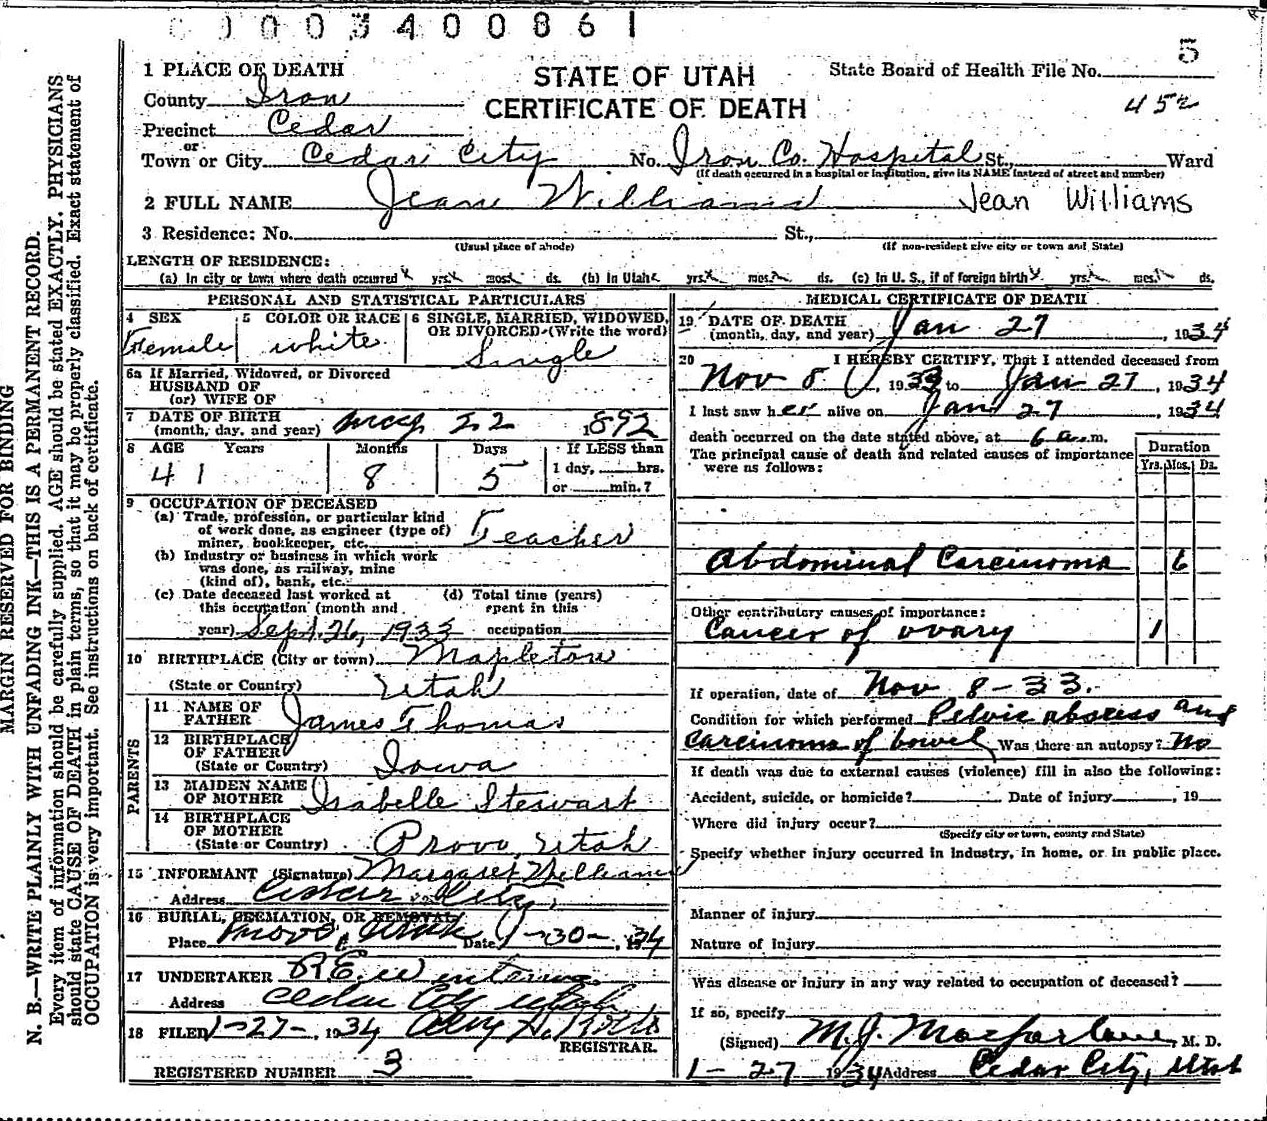 0003400861
5
1 PLACE OF DEATH
STATE OF UTAH
State Board of Health File No.
County Iron
CERTIFICATE OF DEATH
452
Precinct Cedar
or
Town or City Cedar City No. Iron Co. Hospital St., Ward
(If death occurred in a hospital or institution, give its NAME instead of street and number)
2 FULL NAME Jean Williams Jean Williams
3 Residence: No. St.,
(Usual place of abode) (If non-resident give city or town and State)
LENGTH OF RESIDENCE:
(a) In city or town where death occurred yrs. mos. ds. (b) In Utah yrs. mos. ds. (c) In U. S., if of foreign birth yrs. mos. ds.
PERSONAL AND STATISTICAL PARTICULARS
4 SEX 5 COLOR OR RACE 6 SINGLE, MARRIED, WIDOWED, OR DIVORCED (Write the word)
Female white Single
6a If Married, Widowed, or Divorced
HUSBAND OF
(or) WIFE OF
7 DATE OF BIRTH
(month, day, and year) May 22 1892
8 AGE Years Months Days If LESS than
41 8 5 1 day, hrs.
or min.?
9 OCCUPATION OF DECEASED
(a) Trade, profession, or particular kind
of work done, as engineer (type of)
miner, bookkeeper, etc. Teacher
(b) Industry or business in which work
was done, as railway, mine
(kind of), bank, etc.
(c) Date deceased last worked at (d) Total time (years)
this occupation (month and spent in this
year) Sept. 26, 1933 occupation
10 BIRTHPLACE (City or town) Mapleton
(State or Country) Utah
PARENTS
11 NAME OF
FATHER James Thomas
12 BIRTHPLACE
OF FATHER
(State or Country) Iowa
13 MAIDEN NAME
OF MOTHER Isabelle Stewart
14 BIRTHPLACE
OF MOTHER
(State or Country) Provo, Utah
15 INFORMANT (Signature) Margaret Williams
Address Cedar City,
16 BURIAL, CREMATION, OR REMOVAL
Place Provo, Utah Date 1-30-, 34
17 UNDERTAKER
Address Cedar City Utah
18 FILED 1-27-, 1934
REGISTRAR.
REGISTERED NUMBER 3
MEDICAL CERTIFICATE OF DEATH
19 DATE OF DEATH
(month, day, and year) Jan 27, 1934
20 I HEREBY CERTIFY, That I attended deceased from
Nov 8, 1933 to Jan 27, 1934
I last saw her alive on Jan 27, 1934
death occurred on the date stated above, at 6 a.m.
The principal cause of death and related causes of importance
were as follows:
Duration
Yrs. Mos. Ds.
Abdominal Carcinoma 6
Other contributory causes of importance:
Cancer of ovary 1
If operation, date of Nov 8-33.
Condition for which performed Pelvic abscess and
Carcinoma of bowel Was there an autopsy? No
If death was due to external causes (violence) fill in also the following:
Accident, suicide, or homicide? Date of injury, 19
Where did injury occur?
(Specify city or town, county and State)
Specify whether injury occurred in industry, in home, or in public place.
Manner of injury
Nature of injury
Was disease or injury in any way related to occupation of deceased?
If so, specify
(Signed) M.J. Macfarlane, M. D.
1-27 1934 Address Cedar City, Utah
MARGIN RESERVED FOR BINDING
N. B.—WRITE PLAINLY WITH UNFADING INK—THIS IS A PERMANENT RECORD.
Every item of information should be carefully supplied. AGE should be stated EXACTLY. PHYSICIANS
should state CAUSE OF DEATH in plain terms, so that it may be properly classified. Exact statement of
OCCUPATION is very important. See instructions on back of certificate.